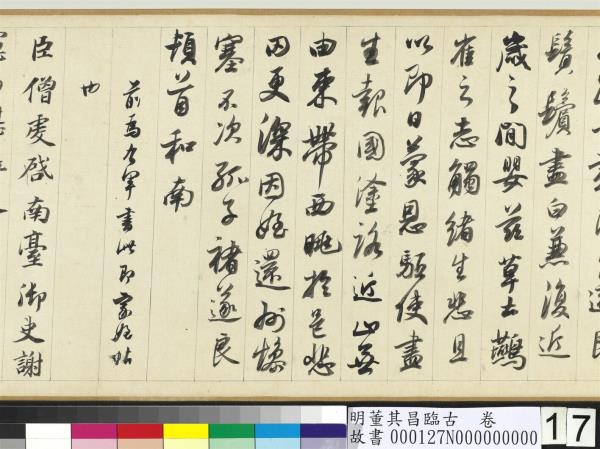 鬢鬚盡白兼復近
歲之間嬰茲草土燕
雀之志觸緒生悲且
以即日蒙恩驅使盡
生報國塗路近止無
由束帶西眺於邑悲
因更深因姪還州慘
塞不次孤子褚遂良
頓首和南
前為右軍書此即家姪帖
也
臣僧虔啓南臺御史謝
明董其昌臨古 卷
故書 000127N000000000
17